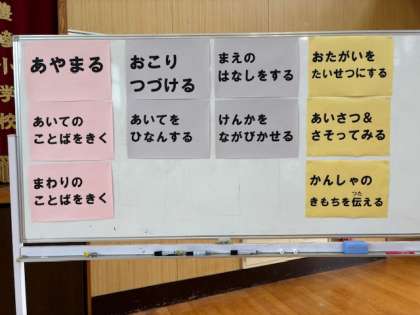 あやまる
おこり
つづける
まえの
はなしをする
おたがいを
たいせつにする
あいての
ことばをきく
あいてを
ひなんする
けんかを
ながびかせる
あいさつ&
さそってみる
まわりの
ことばをきく
かんしゃの
きもちを伝える
つた
小学校